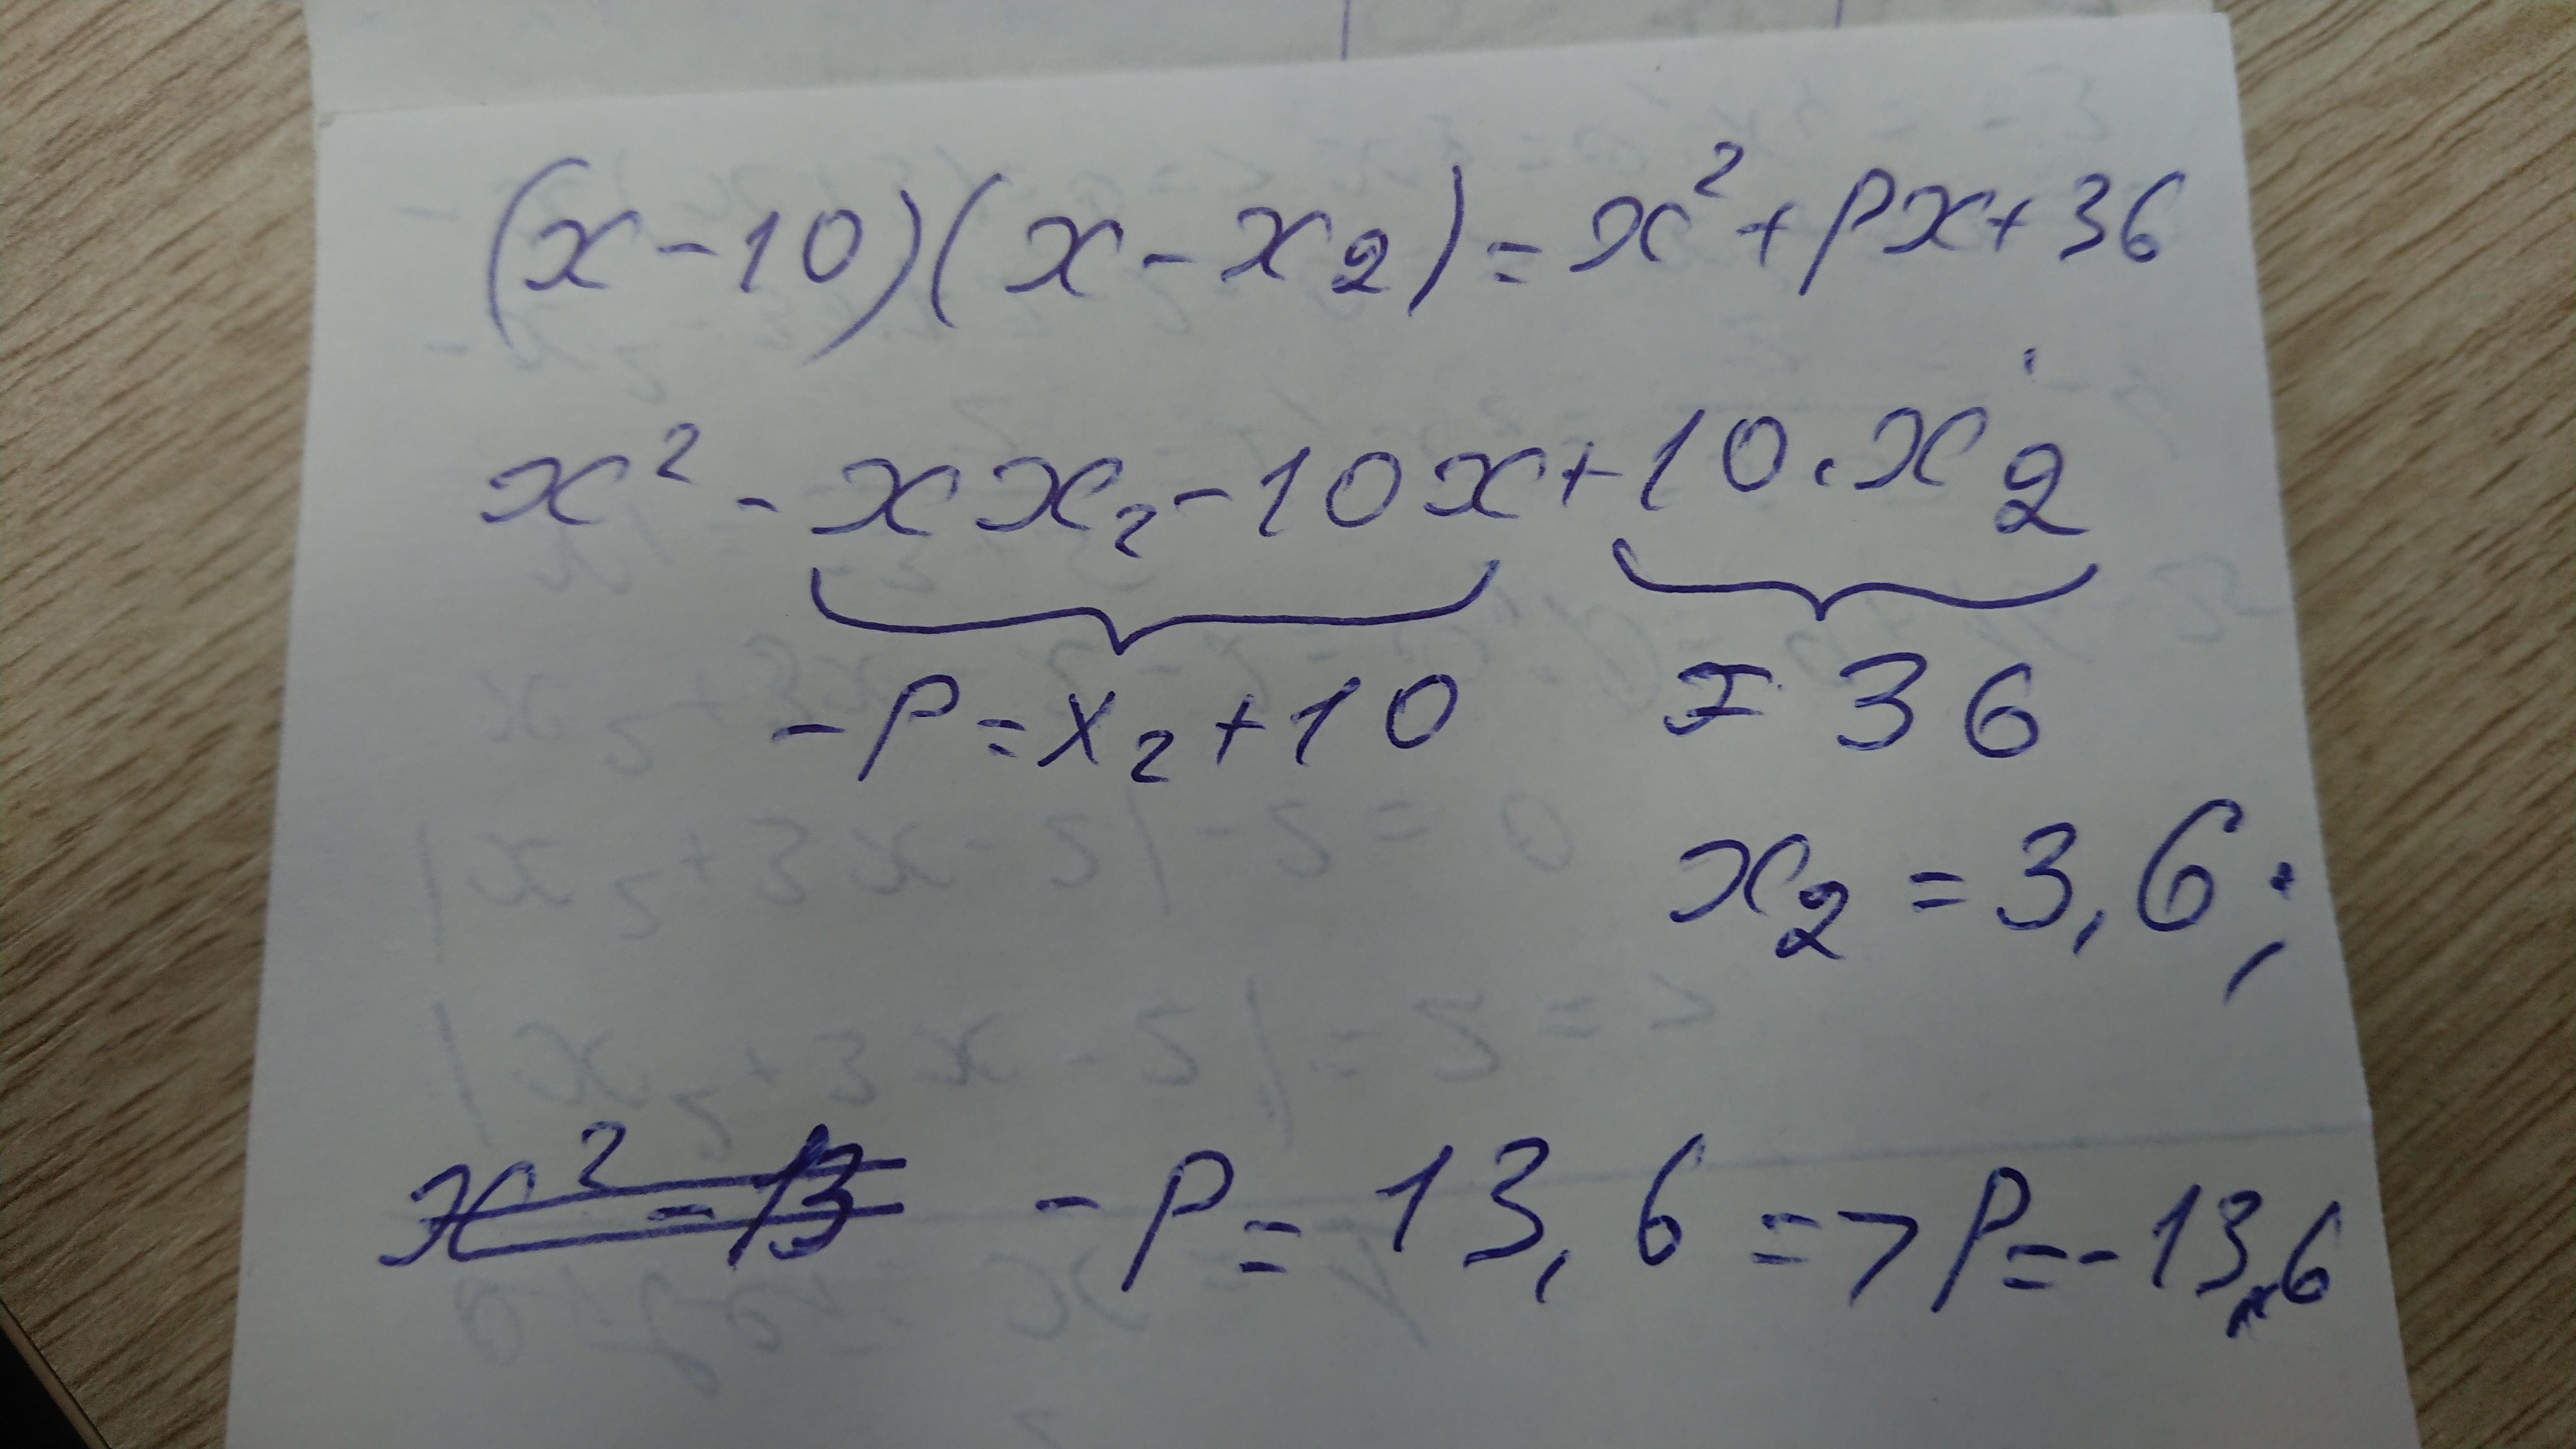 (x-10)(x-x₂)=x²+px+36
x²-xx₂-10x+10·x₂
-p=x₂+10 = 36
x₂=3,6;
x²-13 -p=13,6=>p=-13,6